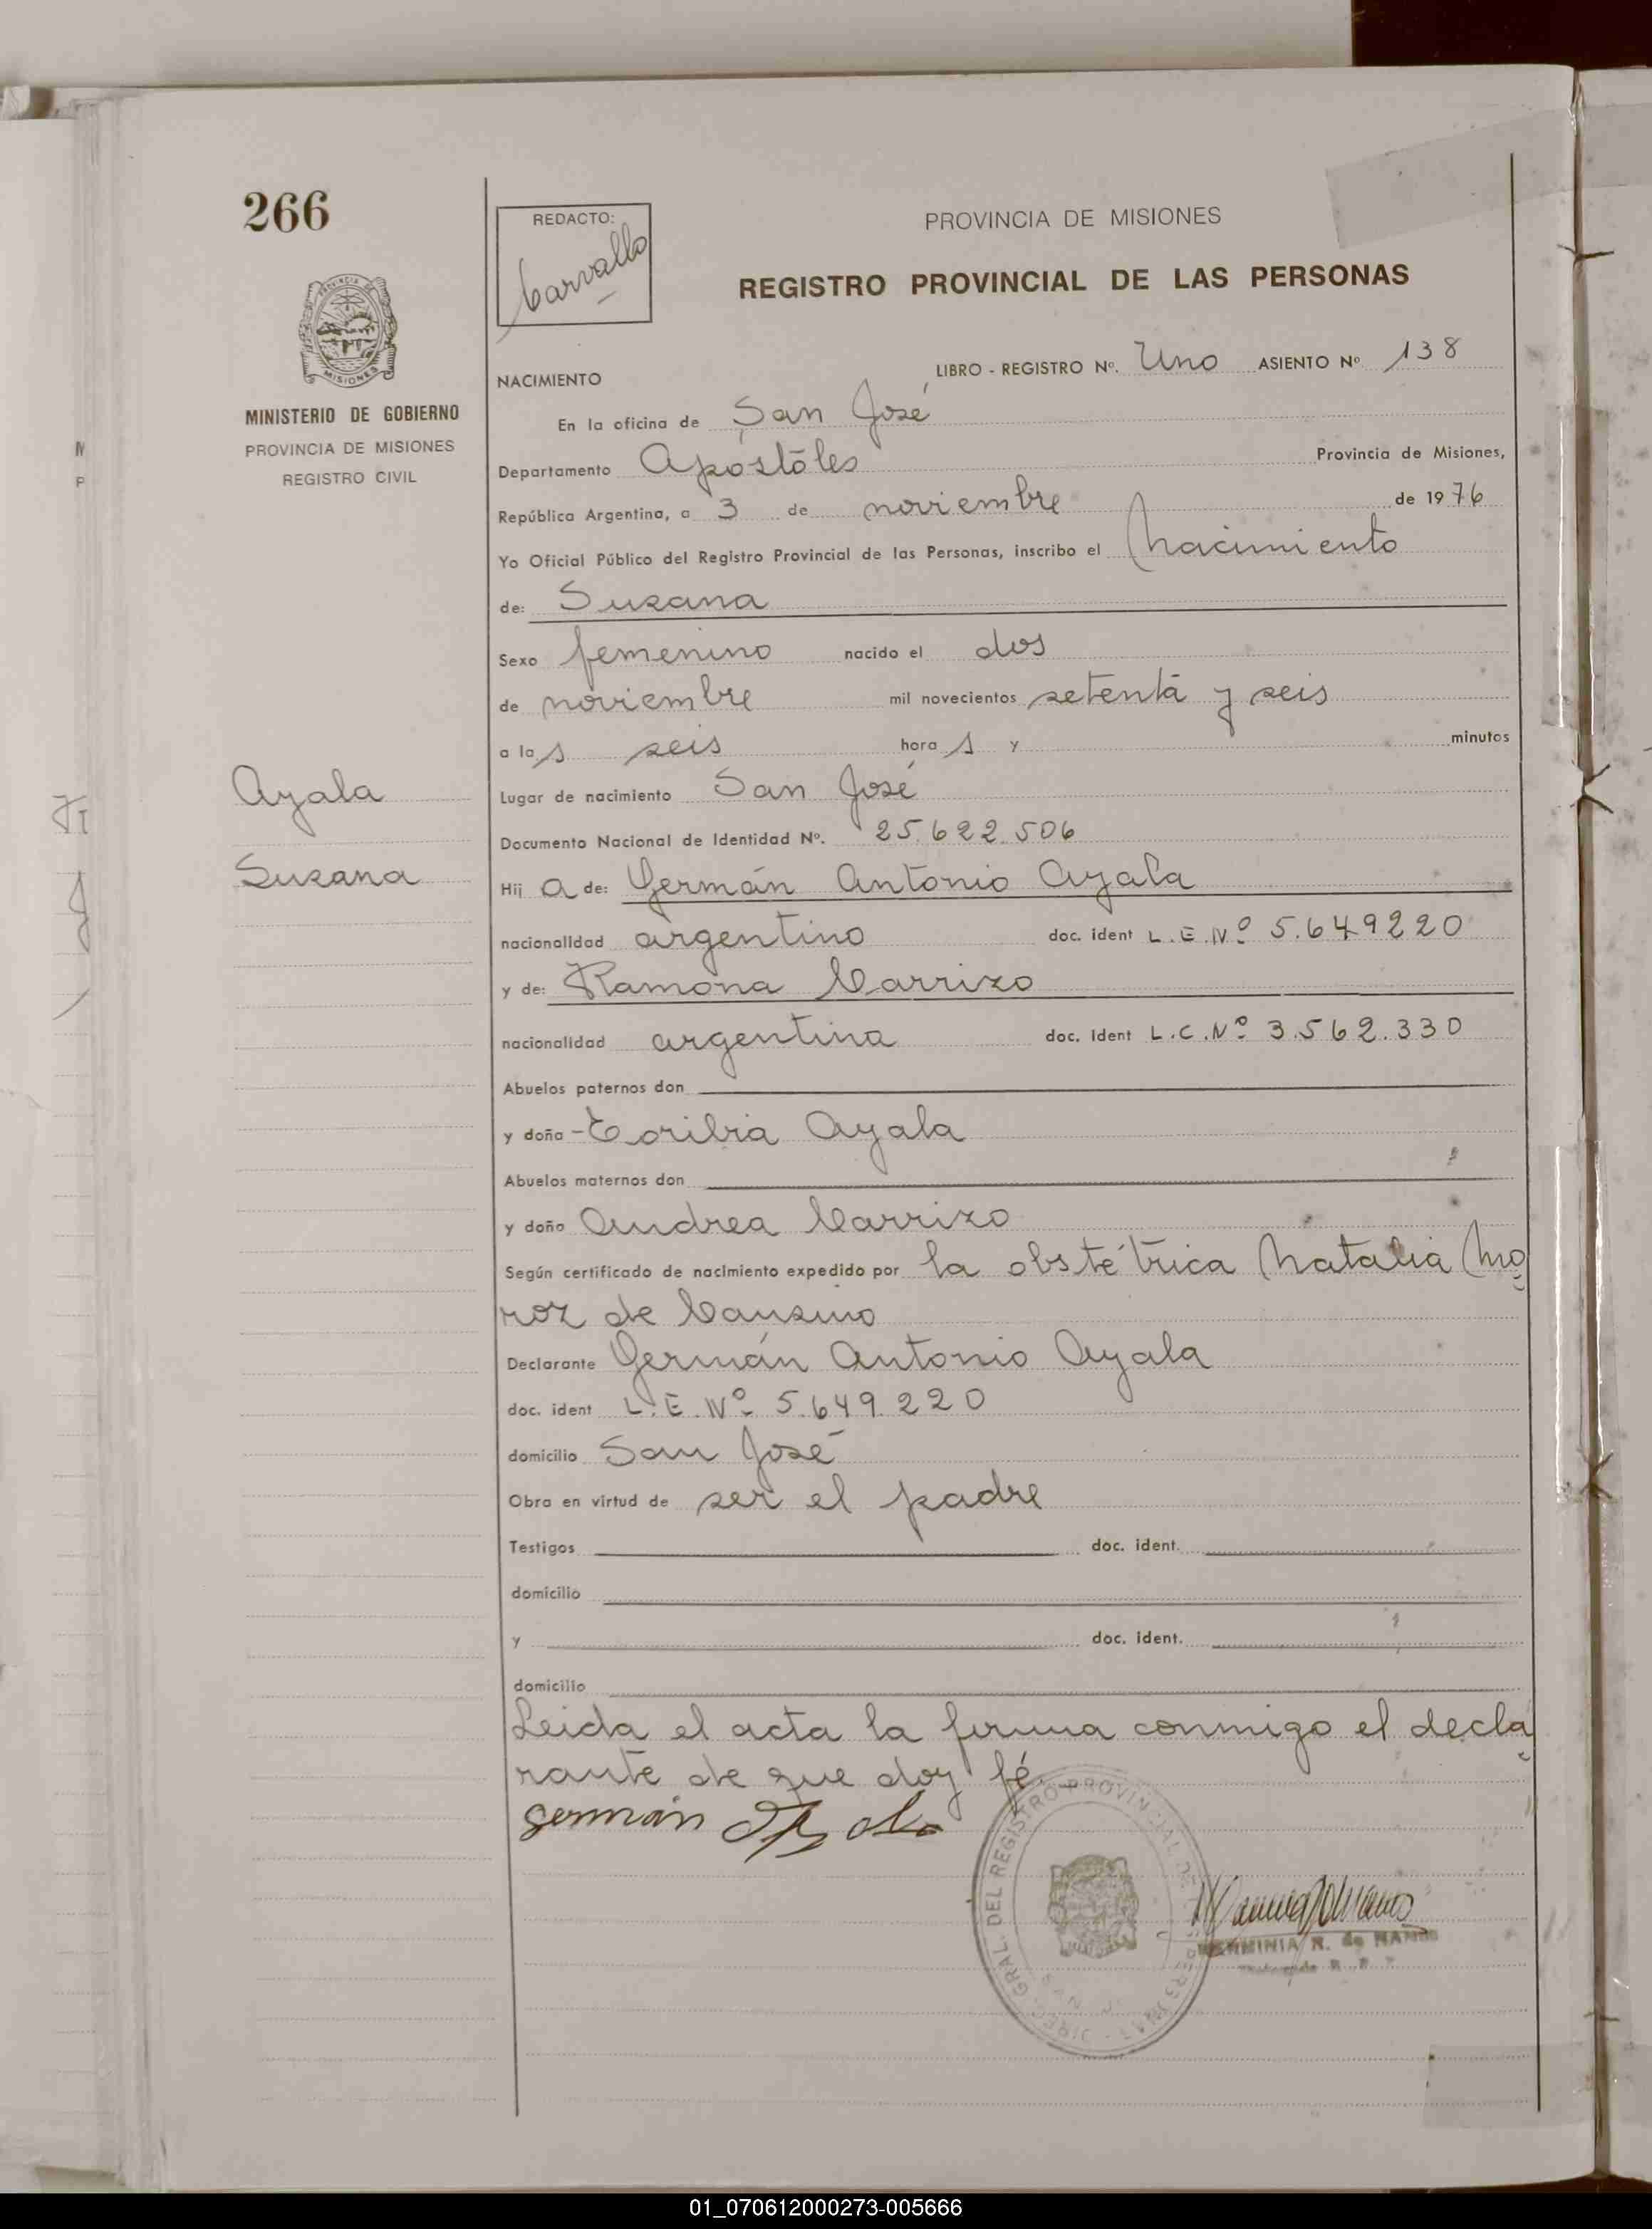 266
REDACTO:
Carvallo
PROVINCIA DE MISIONES
REGISTRO PROVINCIAL DE LAS PERSONAS
MISIONES
MINISTERIO DE GOBIERNO
PROVINCIA DE MISIONES
REGISTRO CIVIL
LIBRO - REGISTRO Nº. Uno ASIENTO Nº 138
NACIMIENTO
En la oficina de San José
Departamento Apóstoles Provincia de Misiones,
República Argentina, a 3 de noviembre de 1976
Yo Oficial Público del Registro Provincial de las Personas, inscribo el Nacimiento
de: Susana
Sexo femenino nacido el dos
de noviembre mil novecientos setenta y seis
a las seis horas y minutos
Ayala
Lugar de nacimiento San José
Documento Nacional de Identidad Nº. 25.622.506
Susana
Hija de: Germán Antonio Ayala
nacionalidad argentino doc. ident L.E.Nº 5.649220
y de: Ramona Carrizo
nacionalidad argentina doc. ident L.C.Nº 3.562.330
Abuelos paternos don
y doña - Toribia Ayala
Abuelos maternos don
y doña Andrea Carrizo
Según certificado de nacimiento expedido por la obstétrica Natalia Mo
roz de Cansino
Declarante Germán Antonio Ayala
doc. ident L.E.Nº 5.649.220
domicilio San José
Obra en virtud de ser el padre
Testigos doc. ident.
domicilio
y doc. ident.
domicilio
Leida el acta la firma conmigo el decla
rante de que doy fé.
German Ayala
DIREC. GRAL. DEL REGISTRO PROVINCIAL DE
HERMINIA N. de
01_070612000273-005666